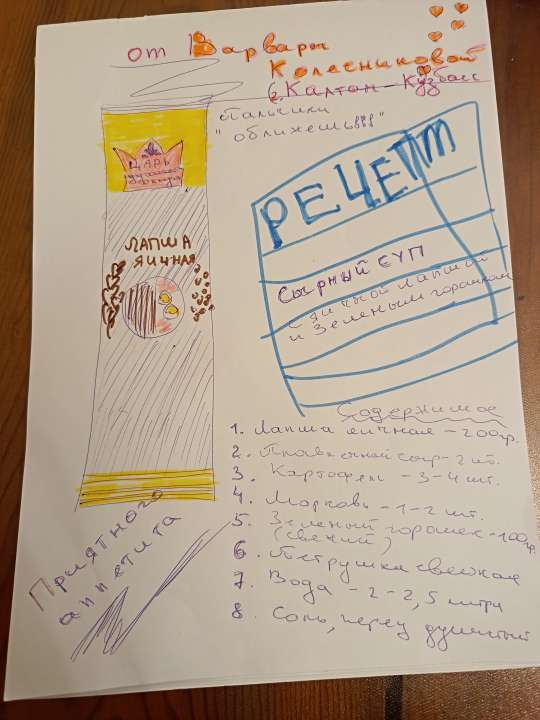 от Варвары
Колесниковой
г. Калтан-Кузбасс
Пальчики
"оближешь
ЦАРЬ
ЛАПША
ЯИЧНАЯ
РЕЦЕПТ
Сырный суп
с яичной лапшой
и зеленым горошком
Содержимое
1. Лапша яичная - 200гр.
2. Плавленый сыр-2 шт.
3. Картофель - 3-4 шт.
4. Морковь - 1-2 шт.
5. Зеленый горошек-100гр.
(свежий)
6. Петрушка свежая
7. Вода - 2-2,5 литра
8. Соль, перец душистый
Приятного
аппетита